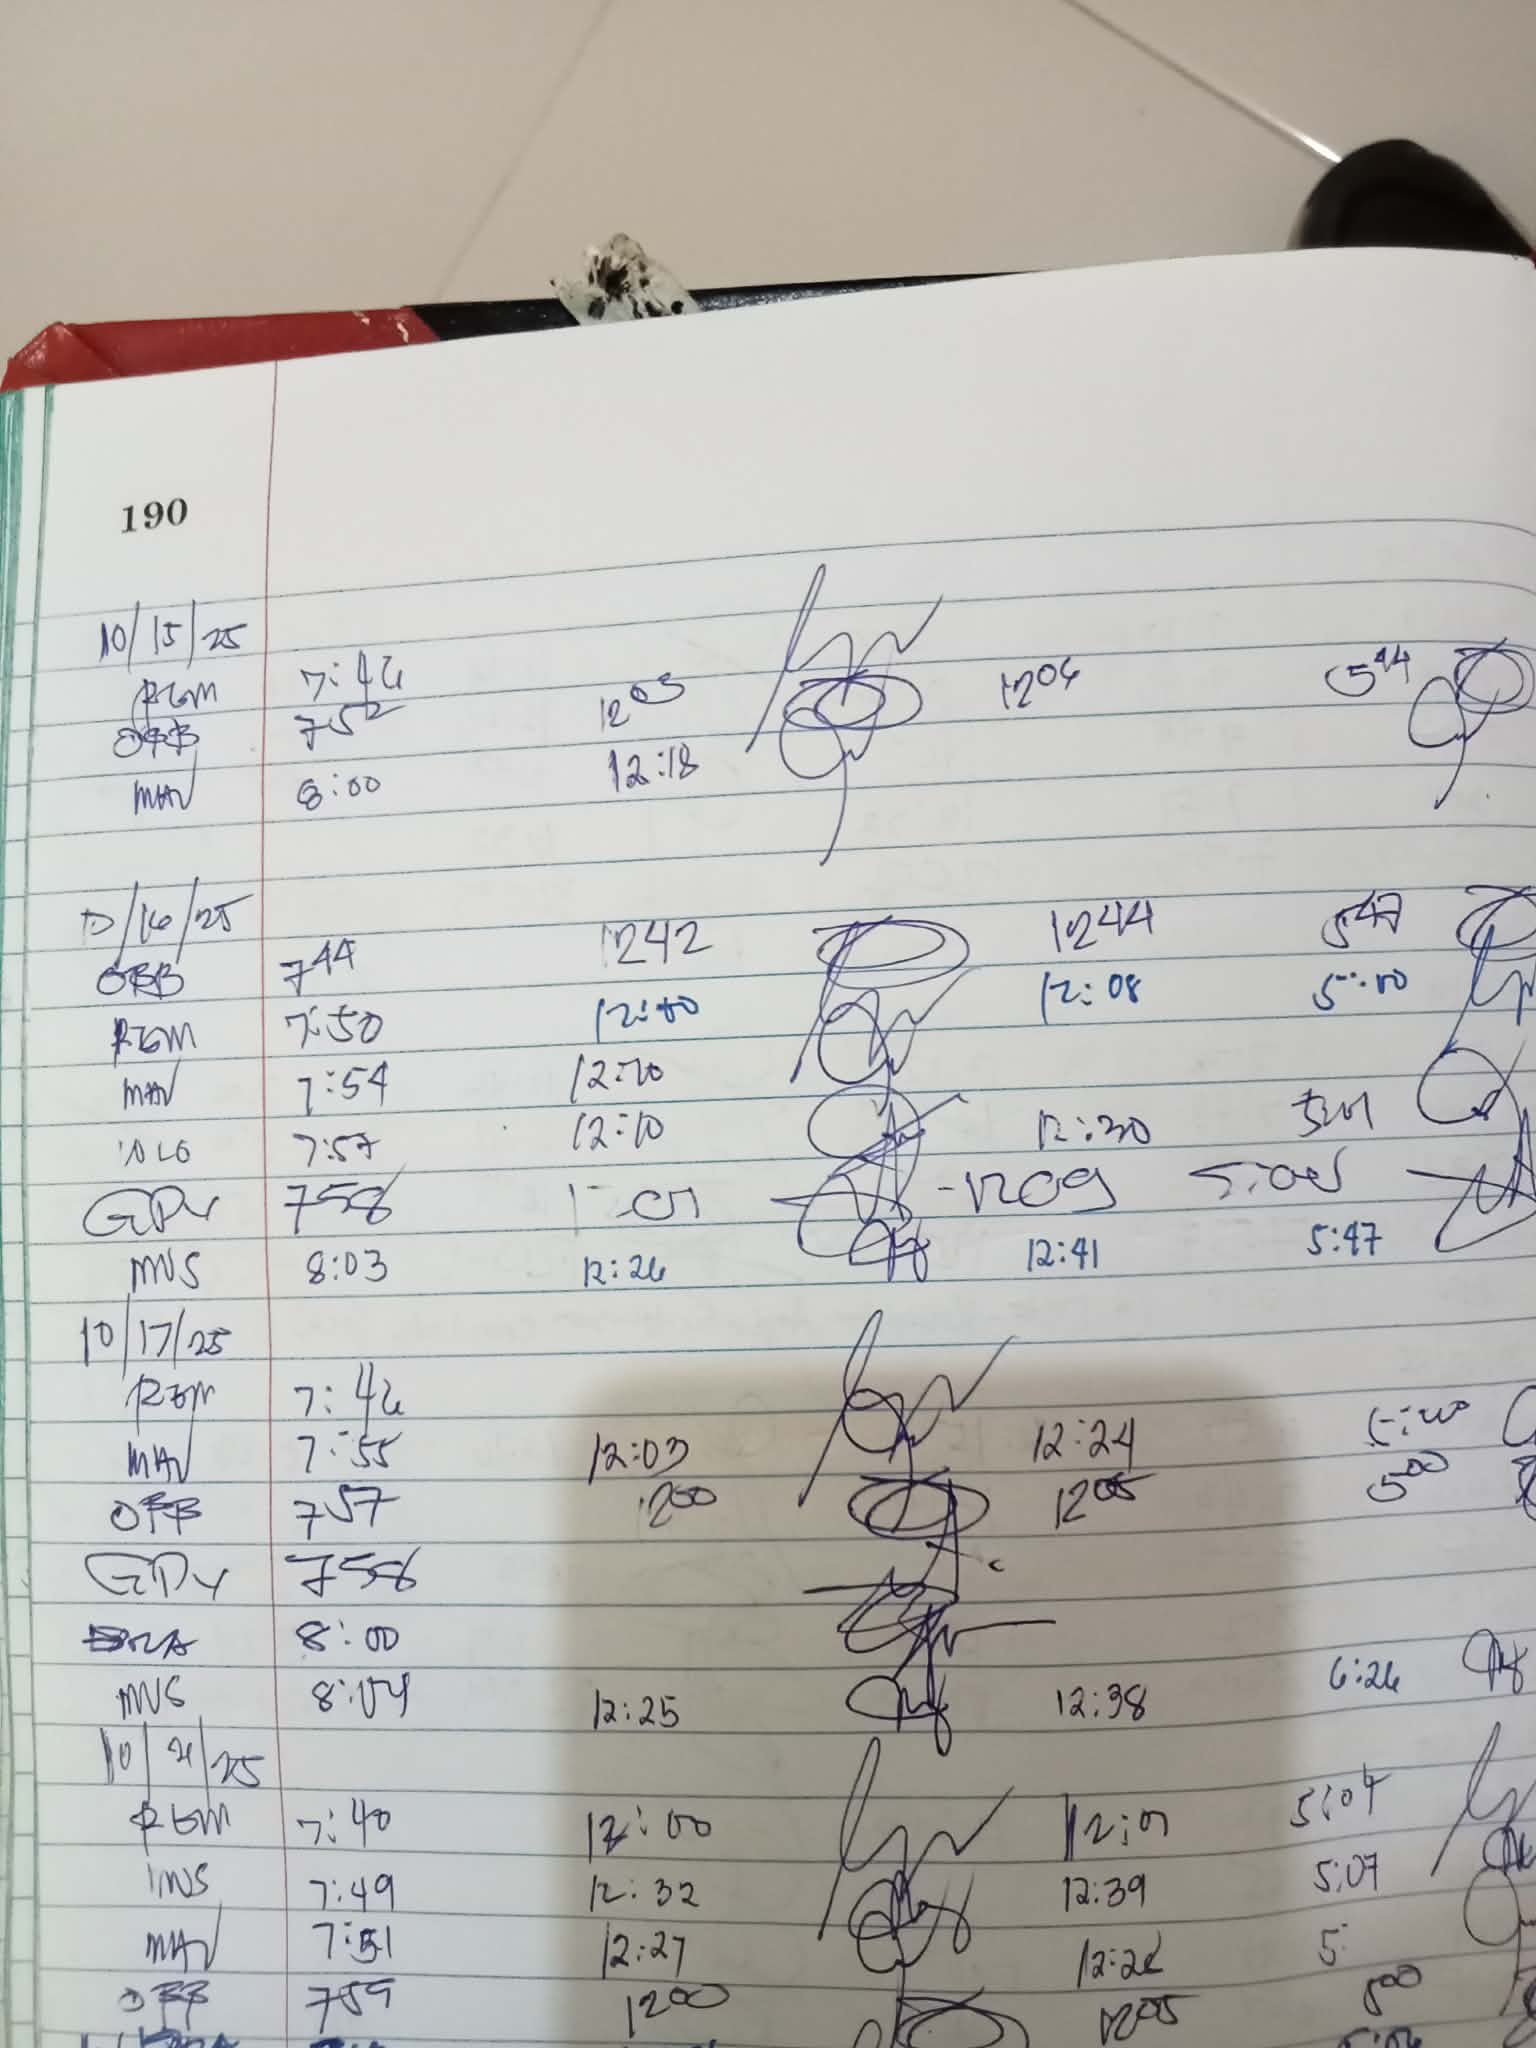 190
10/15/25
REM 7:46
OBB 752 1203 1206 544
MAV 8:00 12:18
10/16/25
OBB 744 1242 1244 547
REM 7:50 12:00 12:08 5:00
MAV 7:54 12:10
7:57 12:10 12:30
GPY 758 1209
MVS 8:03 12:26 12:41 5:47
10/17/25
REM 7:46
MAV 7:55 12:03 12:24
OBB 757 1200 1205 500
GPY 758
8:00
MVS 8:04 12:25 12:38 6:26
10/21/25
REM 7:40 12:00 12:01 5:04
MVS 7:49 12:32 12:39 5:07
MAV 7:51 12:27 5:
OBB 759 1200 1205 500